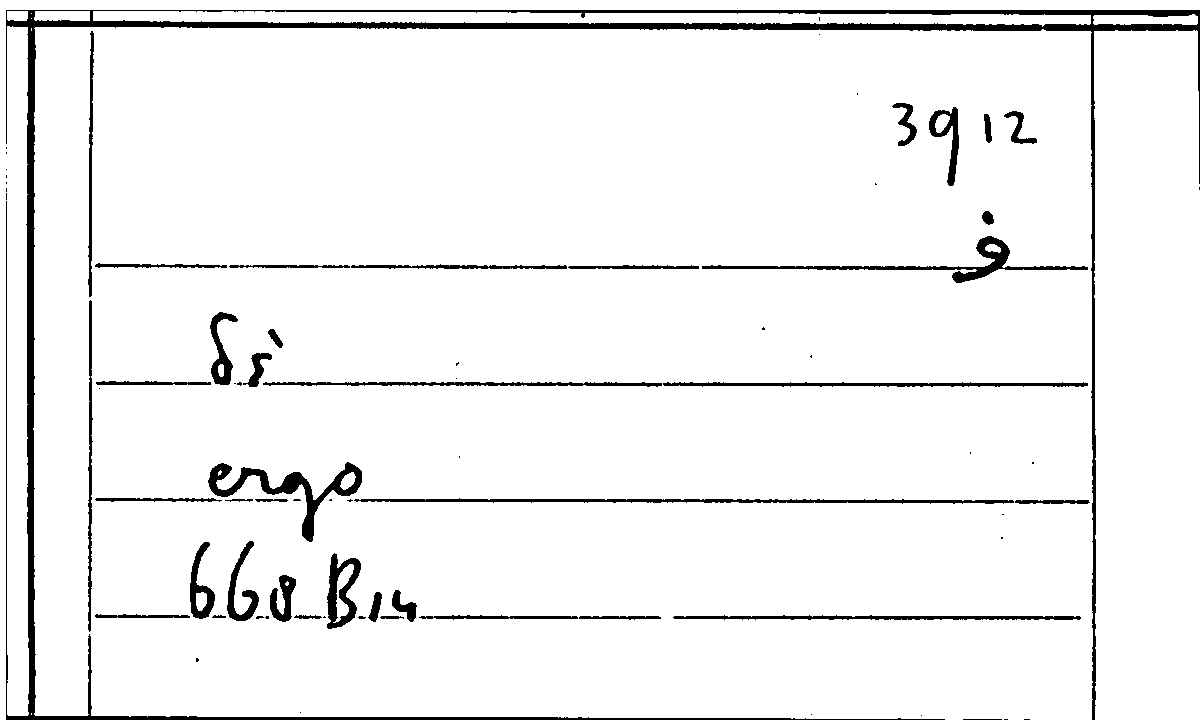 3912
ف
δέ
ergo
668 B 14